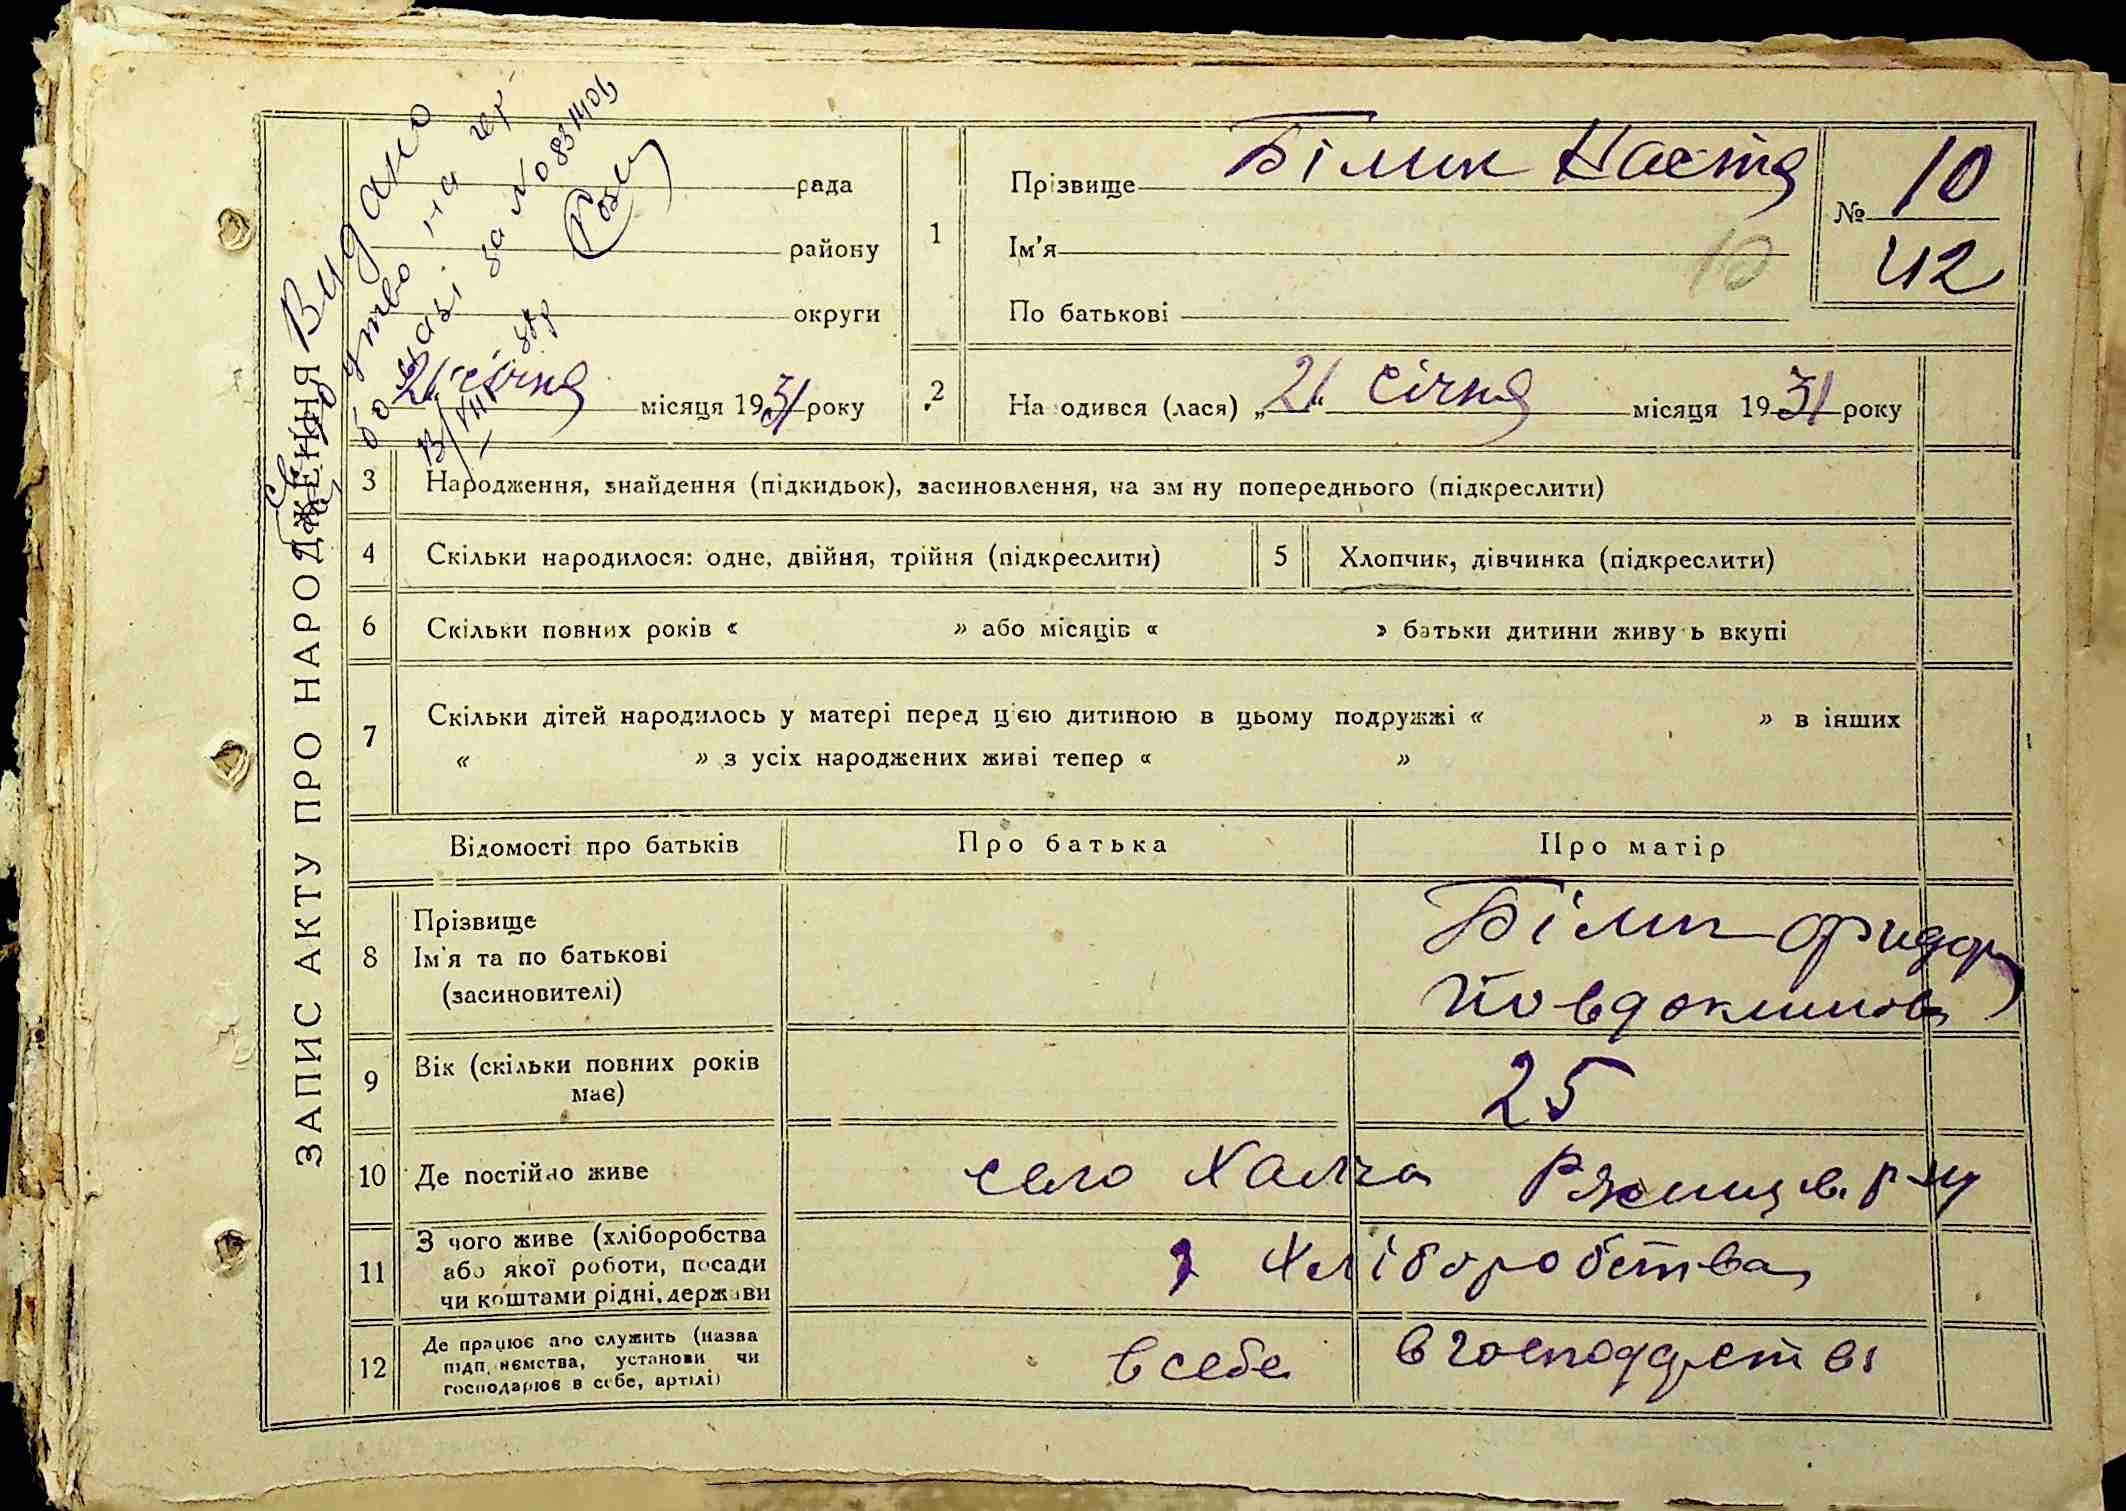 ЗАПИС АКТУ ПРО НАРОДЖЕННЯ
Видано
рада
району
округи
"21" січня місяця 1931 року
1
Прізвище Білик Настя
Ім'я
По батькові
10
№ 10
42
2
На одився (лася) „21“ січня місяця 1931 року
3 Народження, знайдення (підкидьок), засиновлення, на зм ну попереднього (підкреслити)
4 Скільки народилося: одне, двійня, трійня (підкреслити)
5 Хлопчик, дівчинка (підкреслити)
6 Скільки повних років « » або місяців « » батьки дитини живу ь вкупі
7 Скільки дітей народилось у матері перед цією дитиною в цьому подружжі « » в інших
« » з усіх народжених живі тепер « »
Відомості про батьків Про батька Про матір
8 Прізвище
Ім'я та по батькові
(засиновителі)
Білик
9 Вік (скільки повних років
має)
25
10 Де постійно живе село Халча
11 З чого живе (хліборобства
або якої роботи, посади
чи коштами рідні, держави
з хліборобства
12 Де працює або служить (назва
підп иємства, установи чи
господарює в себе, артілі)
в себе в господарстві